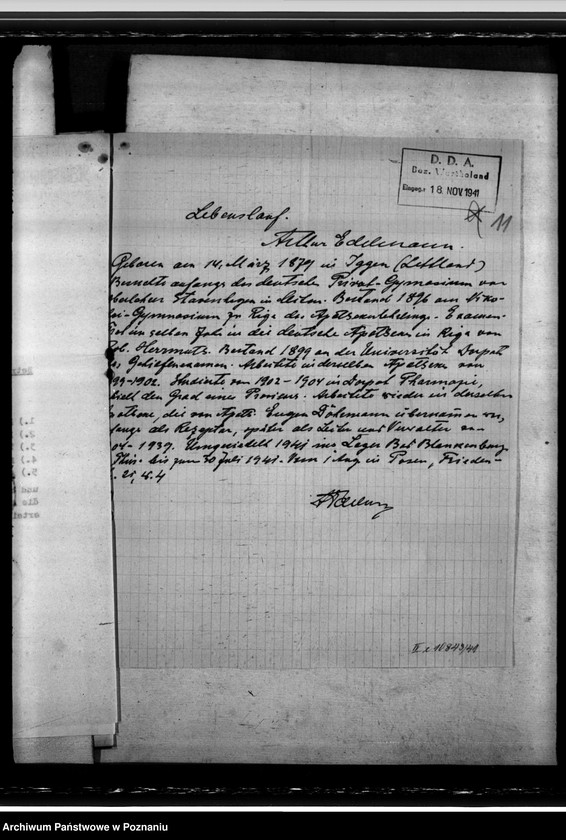 D. D. A.
Bez. Wartheland
Eingeg.: 18. NOV. 1941
11
Lebenslauf.
Artur Edelmann.
Geboren am 14. März 1879 in Iggen (Lettland)
Besuchte anfangs das deutsche Privat-Gymnasium von
Oberlehrer Stavenhagen in Libau. Bestand 1896 am Niko-
lai-Gymnasium zu Riga das
im selben Jahr in die deutsche Apotheke in Riga von
Rob. Bestand 1899 an der Universität Dorpat
das Gehilfenexamen. Arbeitete in derselben Apotheke von
99-1902. Studierte von 1902-1904 in Dorpat Pharmazie,
den Grad eines Provisors. Arbeitete wieder in derselben
die von Apoth. Eugen übernommen war,
als Rezeptar, später als Leiter und Verwalter
04-1939. 1941 ins Lager Bad Blankenburg
Thür. bis zum 30 Juli 1941. Vom 1 Aug in Posen, Frieden-
25, W. 4
II e 16843/41
Archiwum Państwowe w Poznaniu